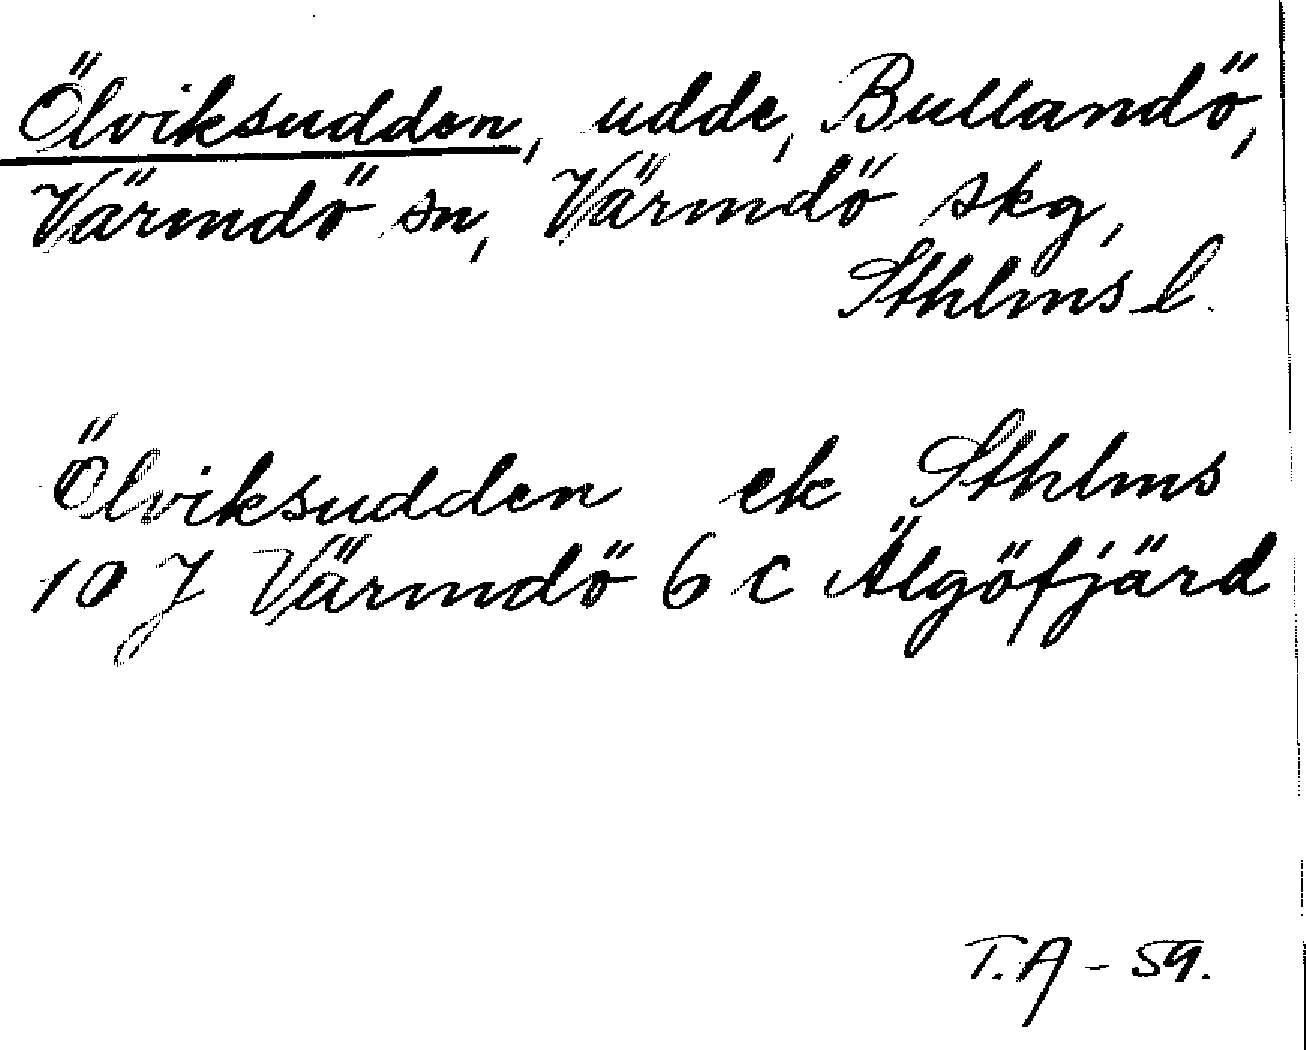 Ölviksudden, udde, Bullandö,
Värmdö sn, Värmdö skg,
Sthlms l.
Ölviksudden ek Sthlms
10 J Värmdö 6 c Älgöfjärd
T.A - 59.